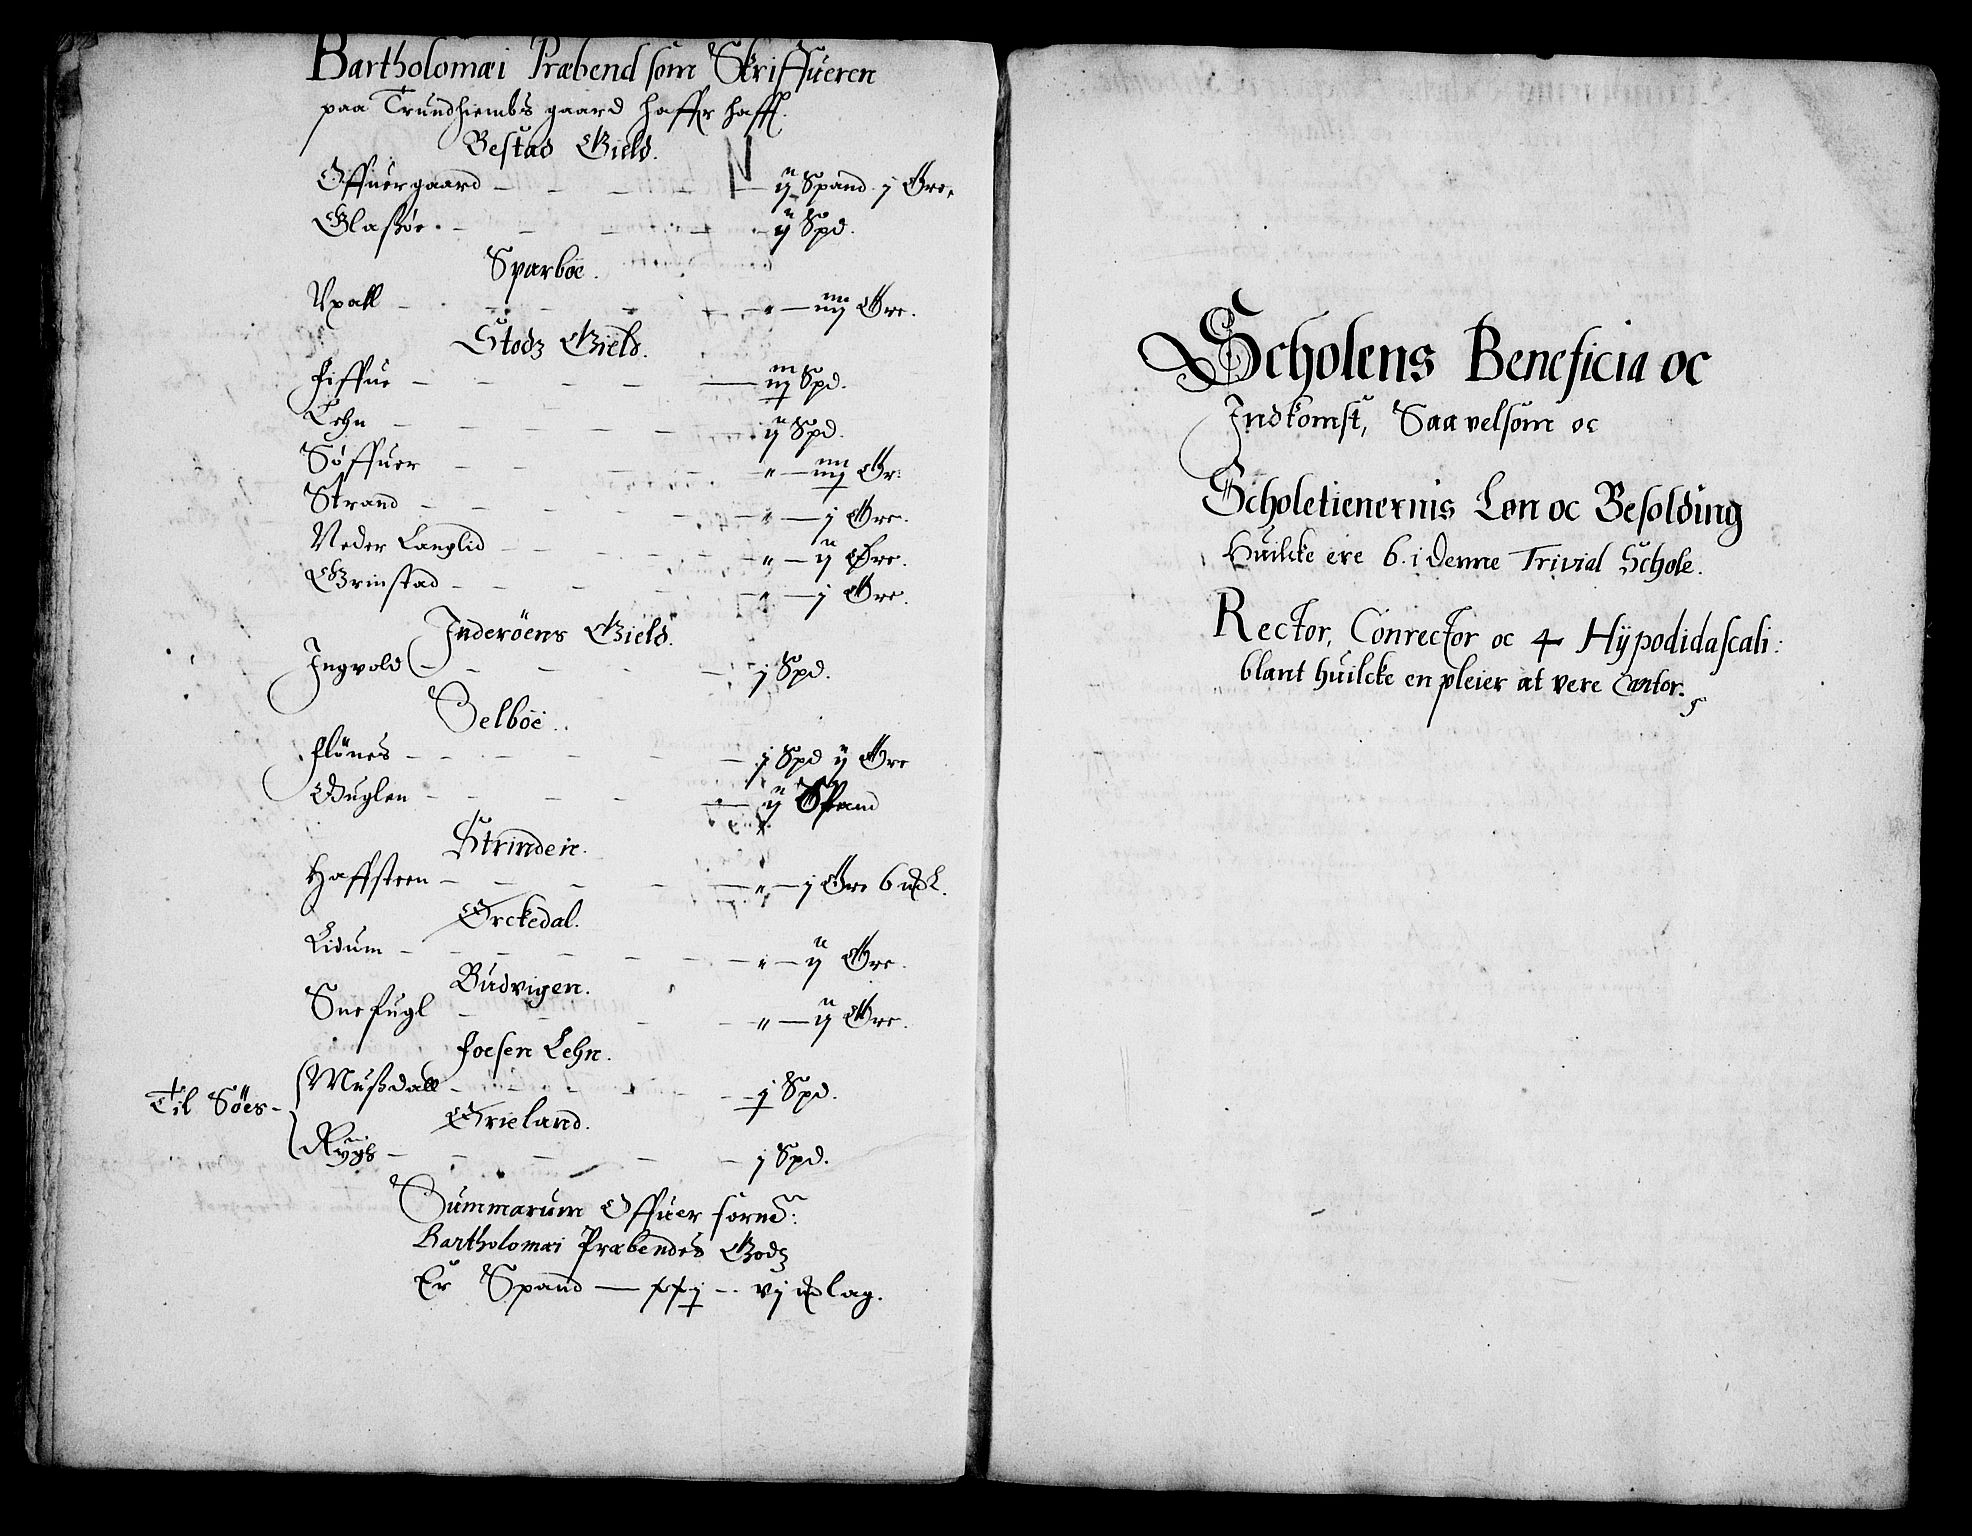 Bartholomæi Præbend som Skriffueren
paa Trundhiembs gaard haffr hafft.
Bestad Gield.
Offuergaard - - - - ij Spand j Øre,
Glaßøe - - - - ij Spd.
Sparboe.
Vxall - - - - " — iiij Øre.
Stodz Gield.
Fiffue - - - - iij Spd.
Lehn - - - - ij Spd.
Søffuer - - - - " — iiij Ør:
Strand - - - - " — j Øre.
Neder Langlid - - - - " — ij Øre.
Grinstad - - - - " — j Øre.
Inderöens Gield.
Ingvold - - - - j Spd.
Selboe.
Flönes - - - - j Spd ij Øre
Guglen - - - - ij Spand
Strinden.
Haffsteen - - - - " — j Øre 6
Orckedal.
Lidum - - - - " — ij Øre.
Budvigen.
Snefugl - - - - " — ij Øre.
Foesen Lehn.
Til Söes - Mußdall - - - - j Spd.
Ørieland.
Rygh - - - - j Spd.
Summarum Offuer forne:
Bartholomæi Præbendes Godz
Er Spand — xxj - vj lag.
Scholens Beneficia oc
Indkomst, Saavelsom oc
Scholetienernis Løn oc Besolding
Huilcke ere 6. i denne Trivial Schole.
Rector, Conrector oc 4 Hÿpodidascali:
blant huilcke en pleier at vere Cantor.